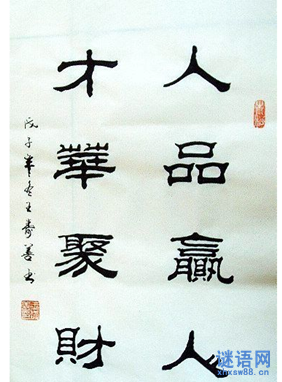 人品贏人
才華聚財
戊子年冬王壽善书
谜语网